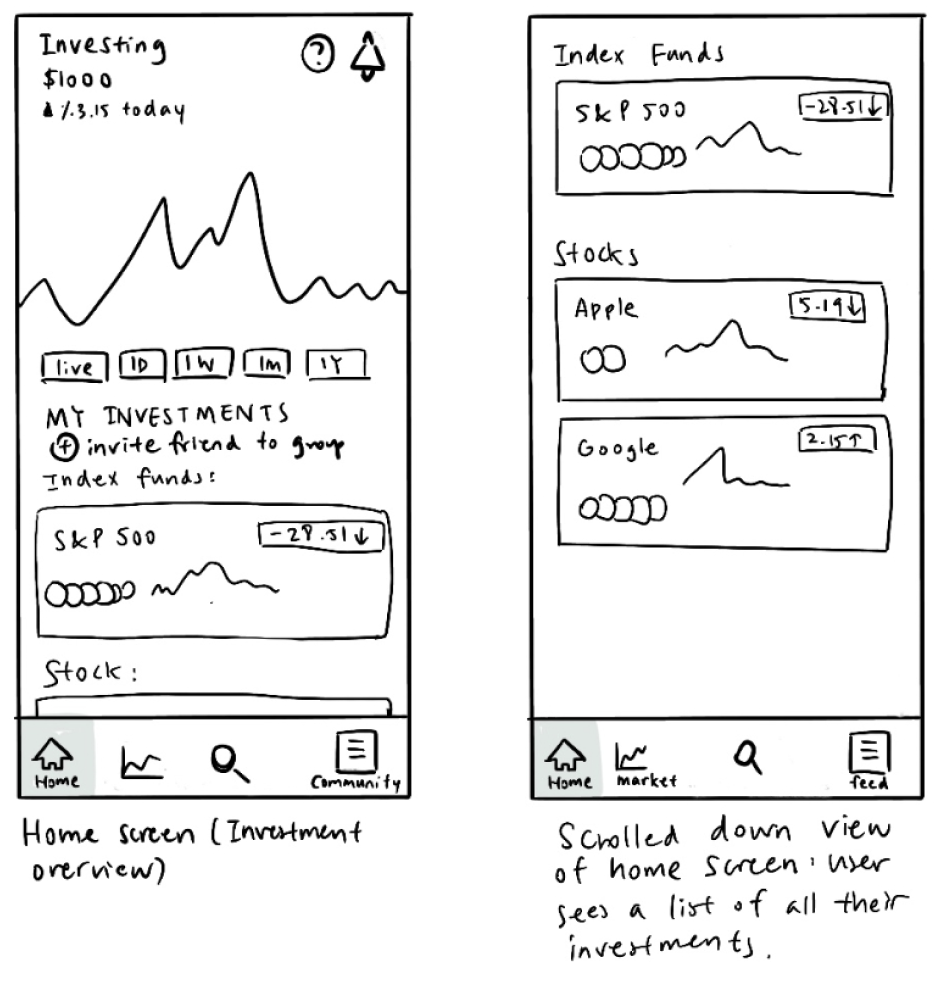 Investing
$1000
▲ %3.15 today
?
live 1D 1W 1m 1Y
MY INVESTMENTS
+ invite friend to group
Index funds:
S&P 500 -28.51↓
Stock:
Home Community
Home screen (Investment
overview)
Index Funds
S&P 500 -28.51↓
Stocks
Apple 5.19↓
Google 2.15↑
Home market feed
Scrolled down view
of home screen: user
sees a list of all their
investments.